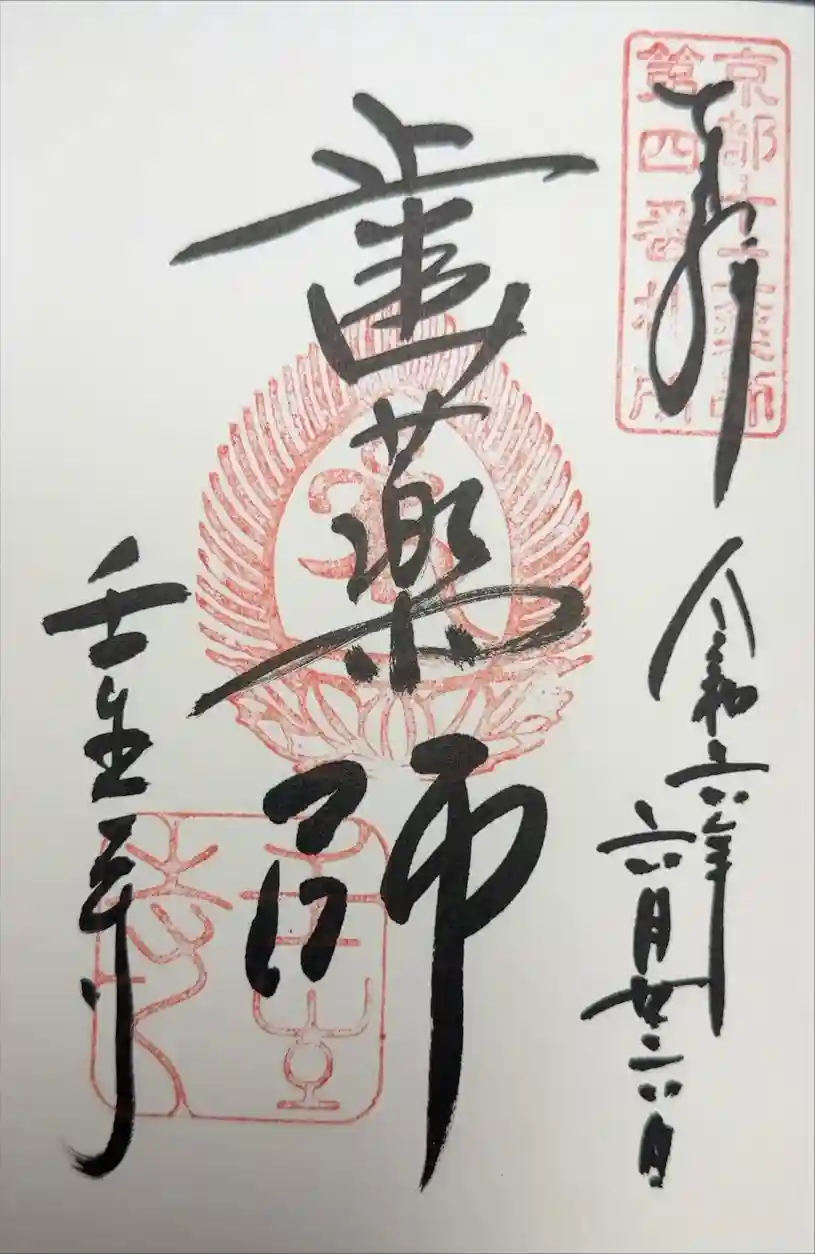 京都十二薬師
第四番札所
奉拝
令和六年
六月廿六日
歯薬師
壬生寺